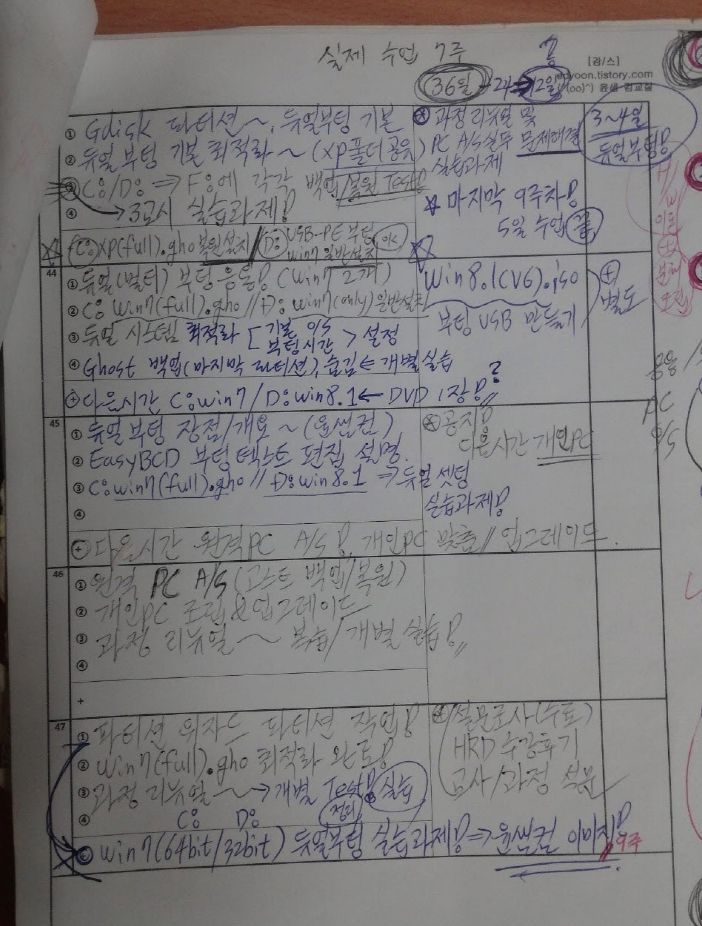 실제 수업 7주
[강/스]
36일 → 24 → 12일
yoon.tistory.com
(^oo)^) 윤샘 컴교실
① Gdisk 파티션~, 듀얼부팅 기본
② 듀얼부팅 기본 최적화 ~ (XP폴더공유)
③ C:/D: ⇒ F:에 각각 백업/복원 Test!
④ → 3교시 실습과제!
☆ C:XP(full).gho 복원설치 // D: USB-PE 부팅 win7 일반설치 OK
과정리뉴얼 및
PC A/S실무 문제해결
실습과제
☆ 마지막 9주차!
5일 수업
3~4일
듀얼부팅!
44
① 듀얼(멀티) 부팅 응용! (Win7 2개)
② C: win7(full).gho // D: win7(only) 일반설치
③ 듀얼 시스템 최적화 [기본 O/S 부팅시간 > 설정
④ Ghost 백업(마지막 파티션) 숨김 ← 개별실습
+ 다음시간 C:win7/D:win8.1 ← DVD 1장!?
Win8.1(V6).iso
부팅 USB 만들기
+ 별도
45
① 듀얼부팅 장점/개요 ~ (윤샘컴)
② EasyBCD 부팅텍스트 편집 설명.
③ C:win7(full).gho // D:win8.1 ⇒ 듀얼 셋팅
실습과제!
④
+ 다음시간 원격PC A/S!, 개인PC 맞춤// 업그레이드.
공지!
다음시간 개인PC
PC
O/S
46
① 원격 PC A/S (고스트 백업/복원)
② 개인PC 조립 & 업그레이드
③ 과정 리뉴얼 ~ 복습/개별실습!
④
+
47
① 파티션 위자드 파티션 작업!
② Win7(full).gho 최적화 완료!
③ 과정 리뉴얼 ~→ 개별 Test! 정리 실습
④ C: D:
win7(64bit/32bit) 듀얼부팅 실습과제! ⇒ 윤샘컴 이미지! 9주
설문조사(수료)
HRD 수강후기
강사/과정 설문